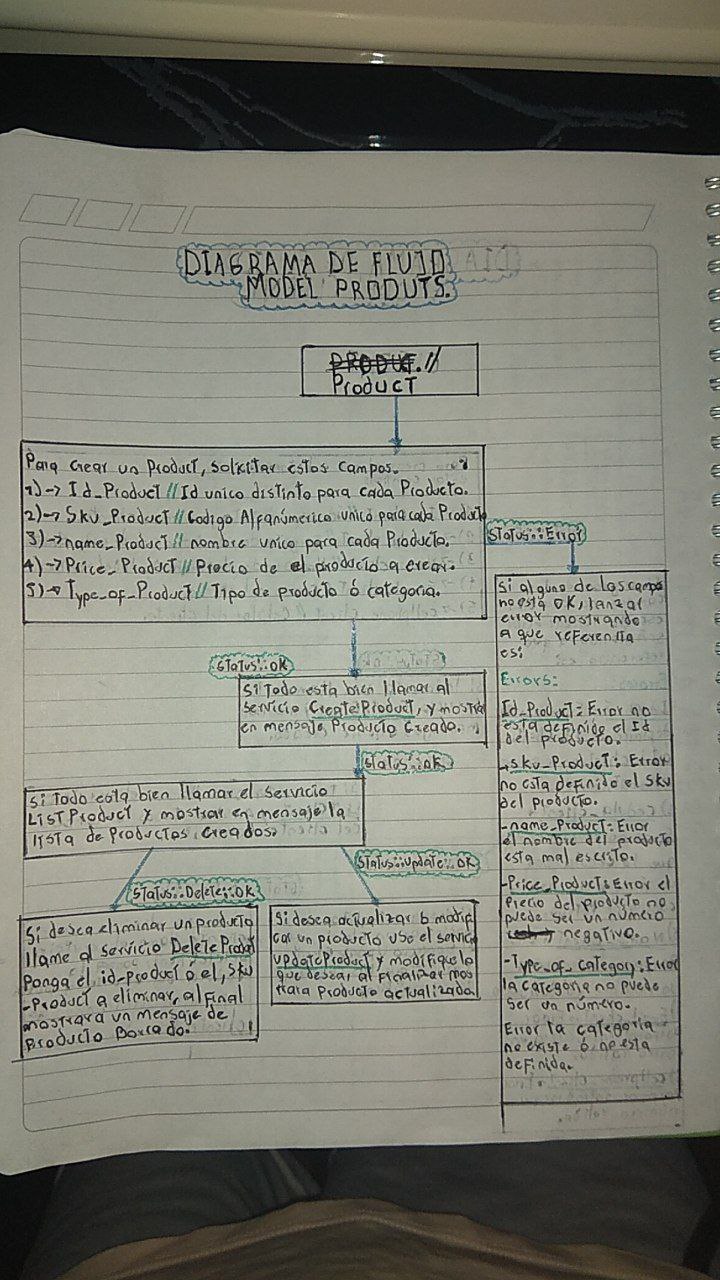 DIAGRAMA DE FLUJO
MODEL PRODUTS.
PRODUC. //
Product
Para crear un Product, solicitar estos campos.
1)-> Id_Product // Id unico distinto para cada Producto.
2)-> Sku_Product // Codigo Alfanúmerico unico para cada Product
3)-> name_Product // nombre unico para cada Producto.
4)-> Price_Product // Precio de el producto a crear.
5)-> Type_of_Product // Tipo de producto ó categoria.
Status::Error
Si alguno de los campo
no esta OK, lanzar
error mostrando
a que referencia
es:
Errors:
Id_Product: Error no
esta definido el Id
del producto.
-sku_Product: Error
no esta definido el sku
del producto.
-name_Product: Error
el nombre del producto
esta mal escrito.
-Price_Product: Error el
Precio del producto no
puede ser un número
negativo.
-Type_of_category: Error
la categoria no puede
ser un número.
Error la categoria
no existe ó no esta
definida.
Status::OK
Si Todo esta bien llamar al
servicio CreateProduct, y mostrar
en mensaje Producto Creado.
Status::OK
Si Todo esta bien llamar el servicio
List Product y mostrar en mensaje la
lista de Productos Creados.
Status::Delete::OK
Status::Update::OK
Si desea eliminar un producto
llame al servicio DeleteProduct
Ponga el id_product ó el, sku
-Product a eliminar, al final
mostrara un mensaje de
Producto Borrado.
Si desea actualizar ó modifi
car un producto use el servicio
updateProduct y modifique lo
que desear al finalizar mos
trara Producto actualizado